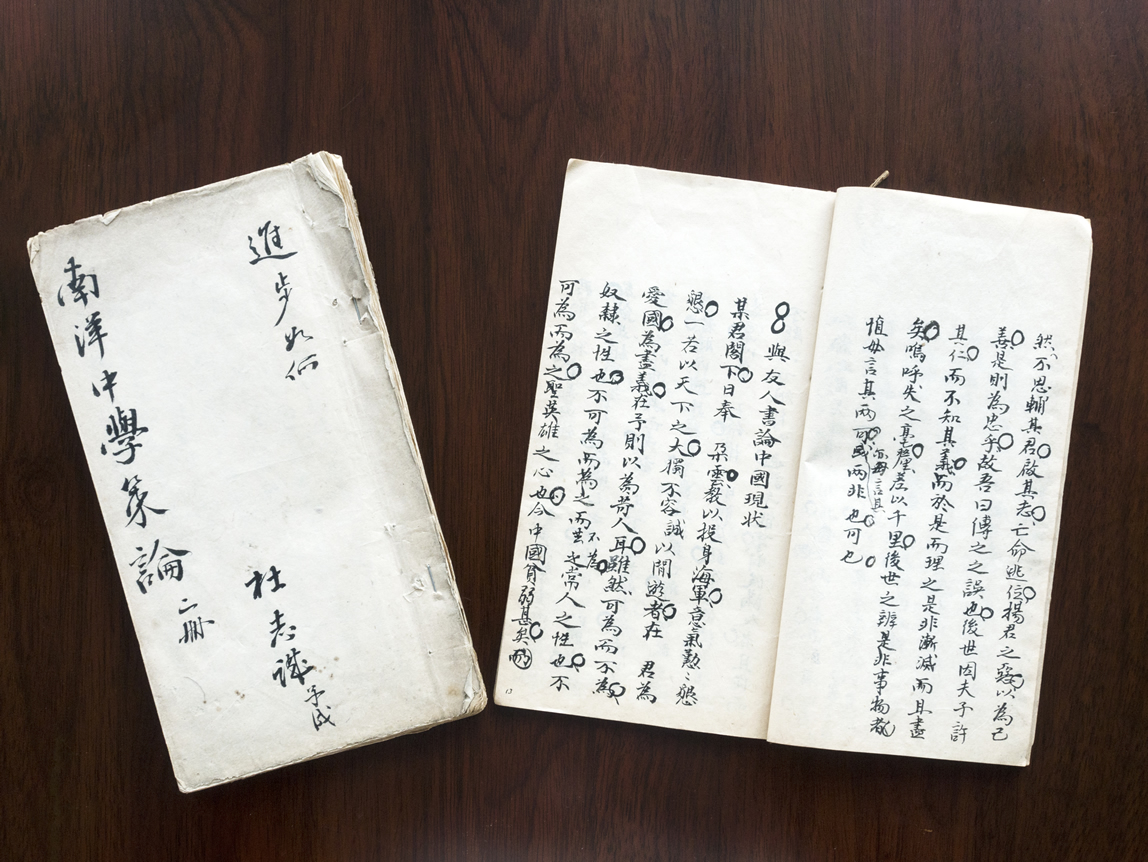 進步如何
杜志誠
南洋中學策論 二冊
然不思輔其君啟其志亡命逃位揚君之惡以為己
善是則為忠乎故吾曰傳之之誤也後世因夫子許
其仁而不知其義而於是而理之是非漸滅而且盡
矣嗚呼失之毫釐差以千里後世之辨是非事物者
慎毋言其兩可或兩非也可也
毋言其
8 與友人書論中國現狀
某君閣下日奉 朵雲 以投身海軍意氣懃〻懇
懇一若以天下之大獨不容誠以閒遊者在 君為
愛國為盡義在予則以為苛人耳雖然可為而不為
奴隸之性也不可為而為之而不為常人之性也不
可為而為之聖英雄之心也今中國貧弱甚矣而
13